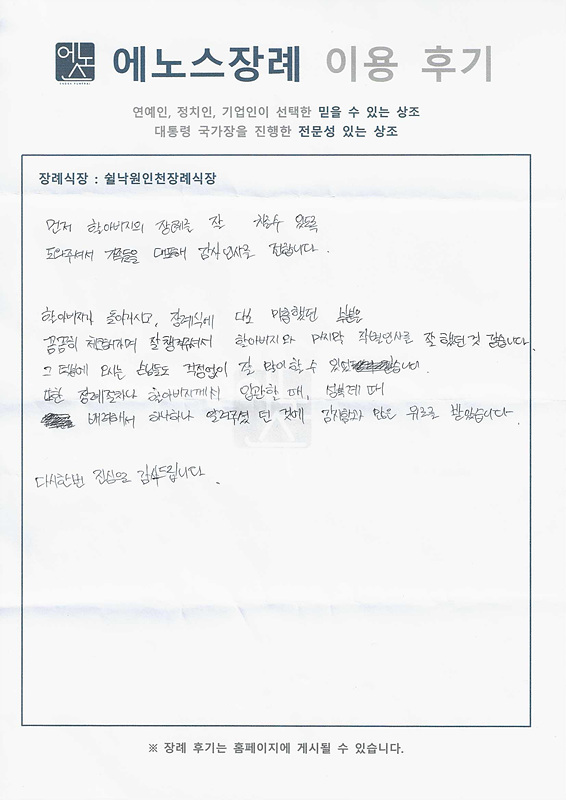 에노스
에노스장례 이용 후기
연예인, 정치인, 기업인이 선택한 믿을 수 있는 상조
대통령 국가장을 진행한 전문성 있는 상조
장례식장 : 쉴낙원인천장례식장
먼저 할아버지의 장례를 잘 치를수 있도록
도와주셔서 가족들을 대표해 감사인사를 전합니다.
할아버지가 돌아가시고, 장례식에 다소 미흡했던 부분을
꼼꼼히 체크해가며 잘 챙겨주셔서 할아버지와 마지막 작별인사를 잘 했던 것 같습니다.
그 덕분에 오시는 손님들도 걱정없이 잘 맞이할 수 있었습니다.
또한 장례절차나 할아버지께서 입관할 때, 성복제 때
배려해서 하나하나 알려주셨던 것에 감사함과 많은 위로를 받았습니다.
다시한번 진심으로 감사드립니다.
※ 장례 후기는 홈페이지에 게시될 수 있습니다.